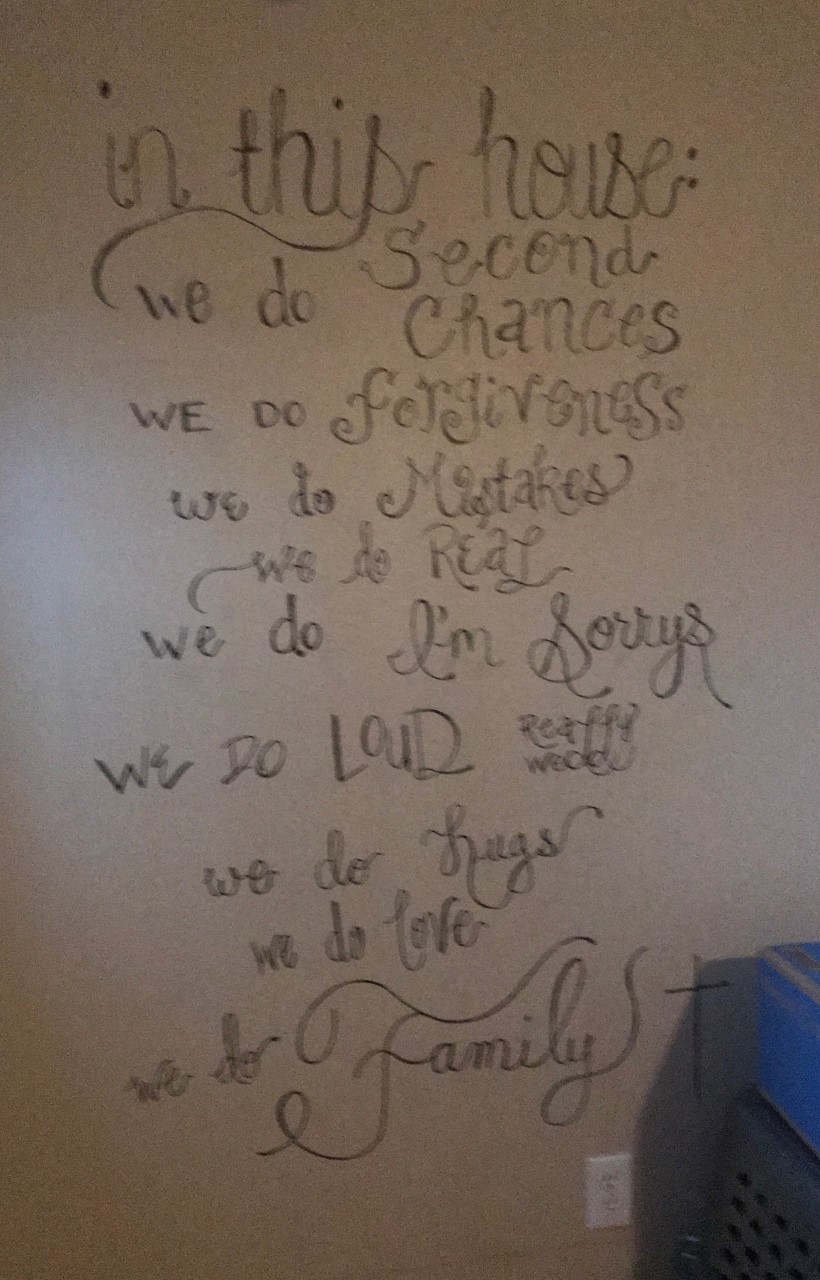 in this house:
we do Second
Chances
WE DO forgiveness
we do Mistakes
we do REAL
we do I'm Sorrys
WE DO LOUD Really
we do hugs
we do love
we do family